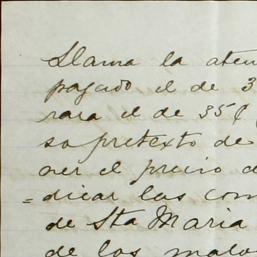 Llama la aten
pagado el de 3
rara el de 35¢
so pretexto de
ner el precio d
dicar las con
= de Sta Maria
de los malo